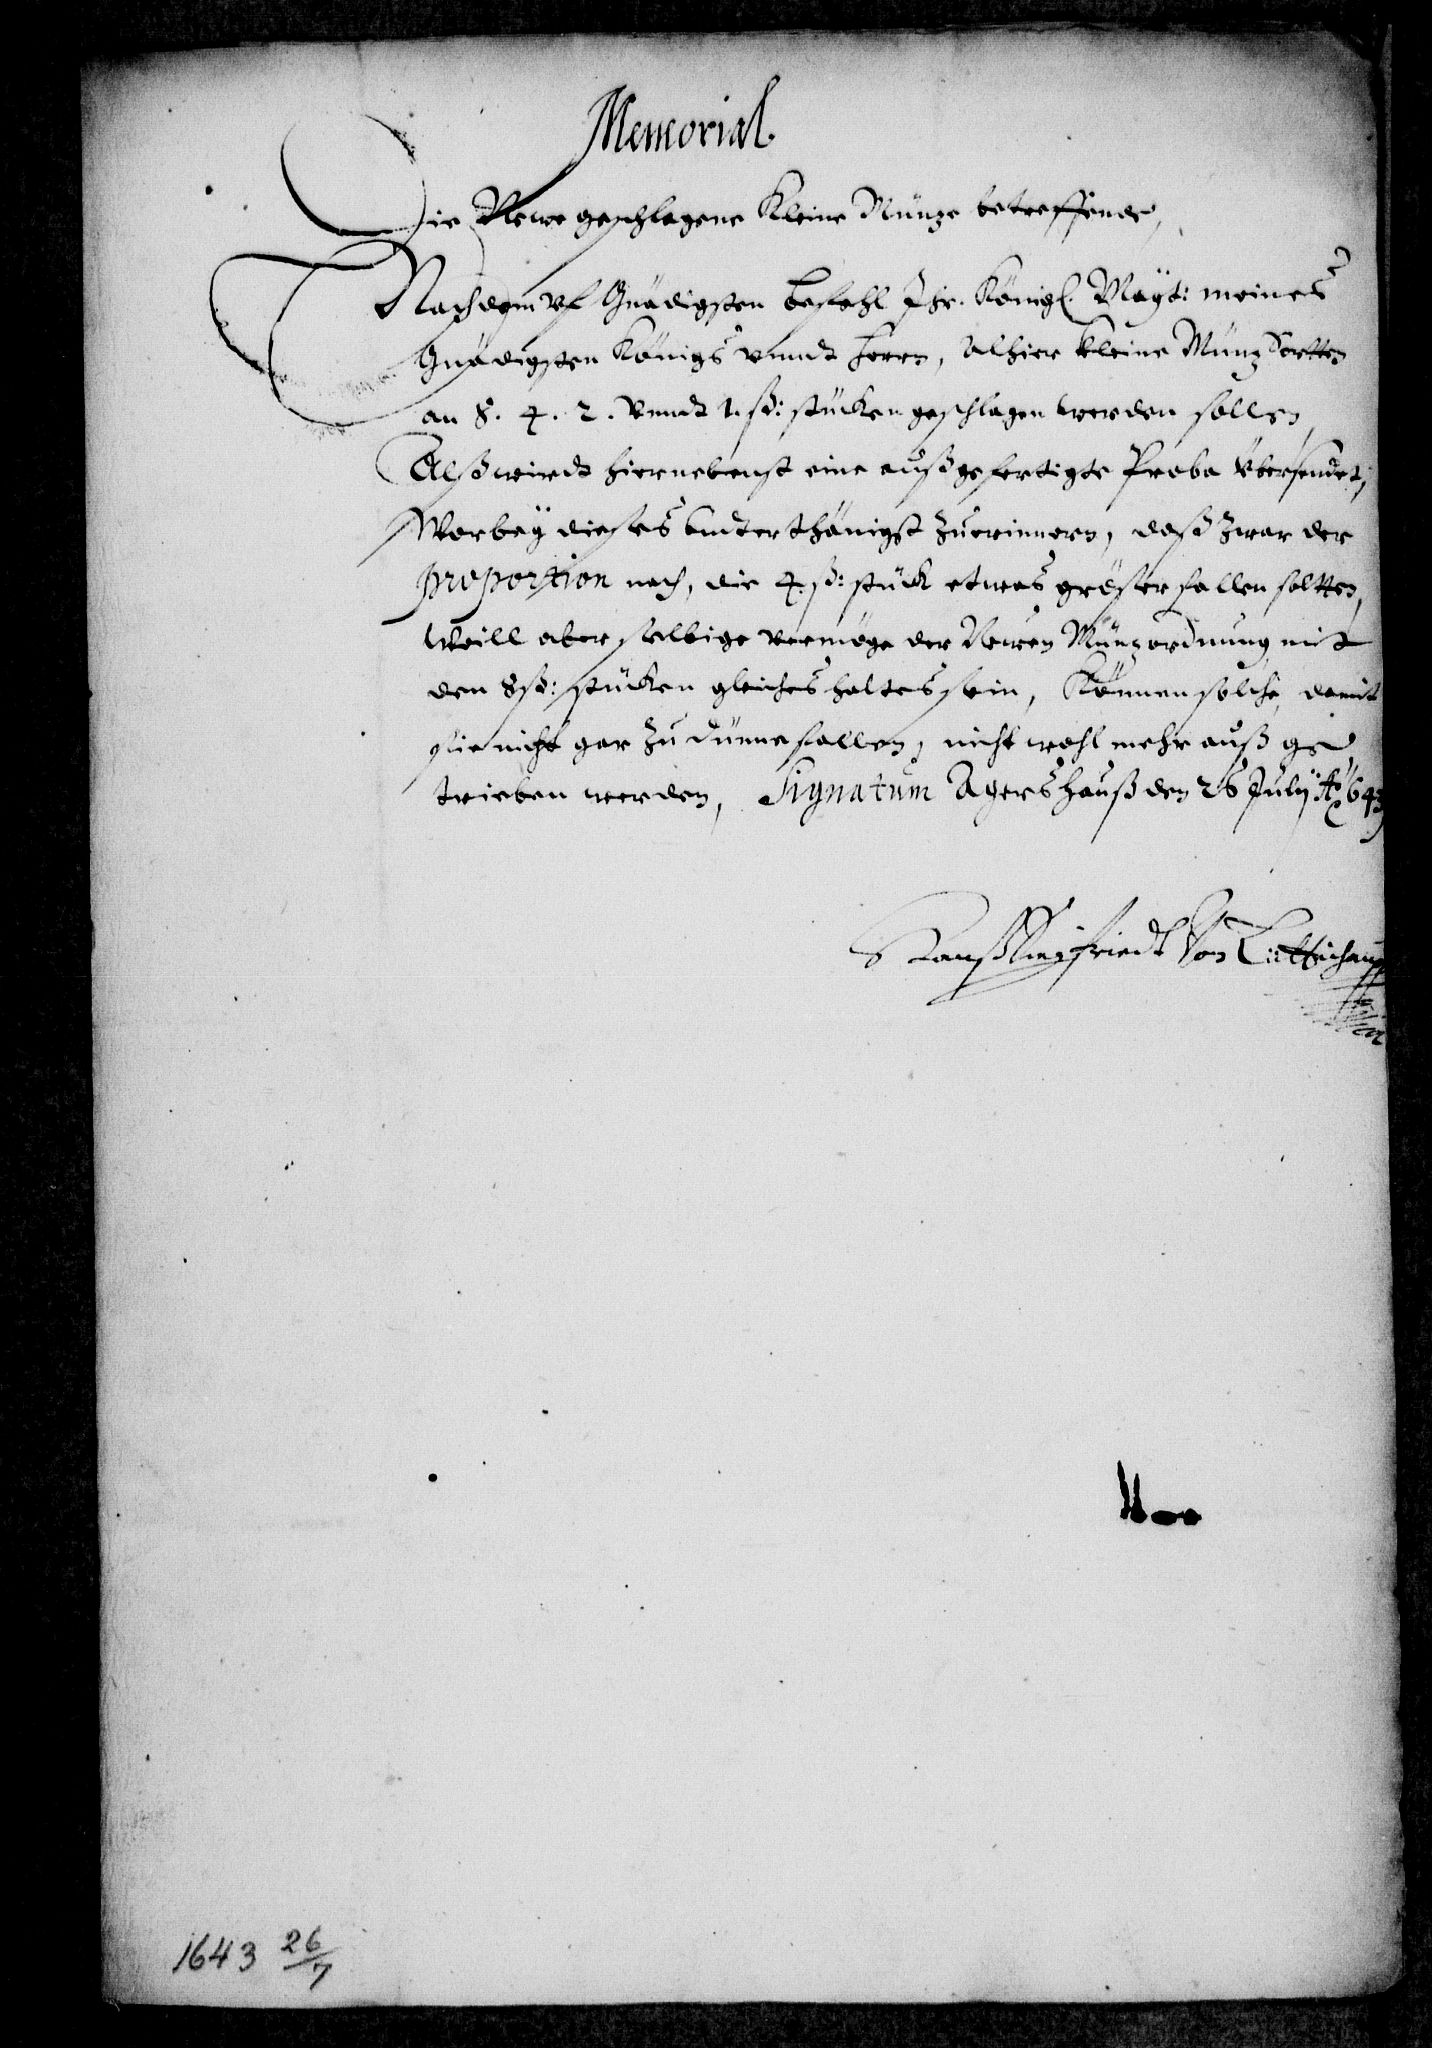 Memorial.
Die Newe geschlagene Kleine Münze betreffende,
Nachdem vf Gnädigsten befehl Ihr. Königl. Mayt: meines
Gnädigsten Königs vnndt Herrn, Alhier kleine Müntz Sortten
an 8. 4. 2. Vnndt 1. ß: stücken geschlagen werden sollen,
Alß wirdt hiernebenst eine außgefertigte Proba vbersendet,
Warbey dieses vnterthänigst zuerinnern, daß zwar der
proportion nach, die 4. ß: stück etwas grösser fallen soltten,
Weill aber selbige vermöge der Newen Müntzordnung mit
den 8 ß: stücken gleiches haltes sein, Können solche, damit
sie nicht gar zu dünne fallen, nicht wohl mehr auß ge
trieben werden, Signatum Agershauß den 26 July Ao 643
Hanß Sigfriedt Von Lüttichauw
1643 26/7